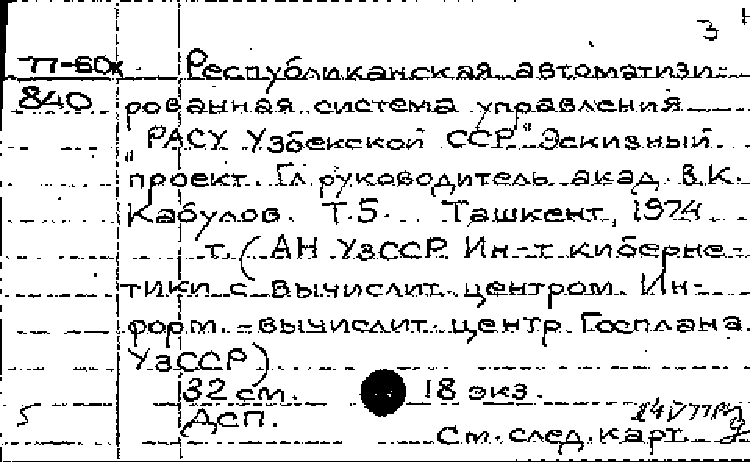 3
77-60к Республиканская автоматизи-
840 рованная система управления
"РАСУ Узбекской ССР" Эскизный
проект. Гл. руководитель акад. В.К.
Кабулов. Т.5. Ташкент, 1974
т. (АН УзССР. Ин-т киберне-
тики с вычислит. центром. Ин-
форм.-вычислит. центр Госплана
УзССР)
32 см. 18 экз.
ДСП.
5 См. след. карт.